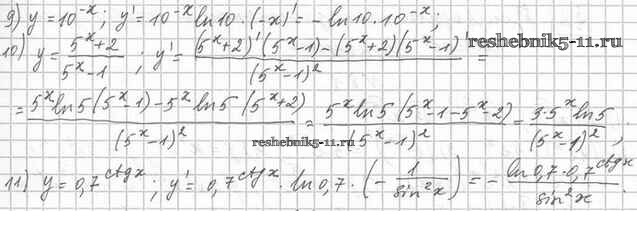 9) y = 10^{-x}; y' = 10^{-x} ln10 · (-x)' = - ln10 · 10^{-x};
10) y = \frac{5^x+2}{5^x-1}; y' = \frac{(5^x+2)'(5^x-1)-(5^x+2)(5^x-1)'}{(5^x-1)^2} =
reshebnik5-11.ru
= \frac{5^x ln5 (5^x-1) - 5^x ln5 (5^x+2)}{(5^x-1)^2} = \frac{5^x ln5 (5^x-1-5^x-2)}{(5^x-1)^2} = \frac{3·5^x ln5}{(5^x-1)^2};
www.reshebnik5-11.ru
11) y = 0,7^{ctgx}; y' = 0,7^{ctgx} · ln0,7 · (-\frac{1}{sin^2x}) = -\frac{ln0,7·0,7^{ctgx}}{sin^2x}.